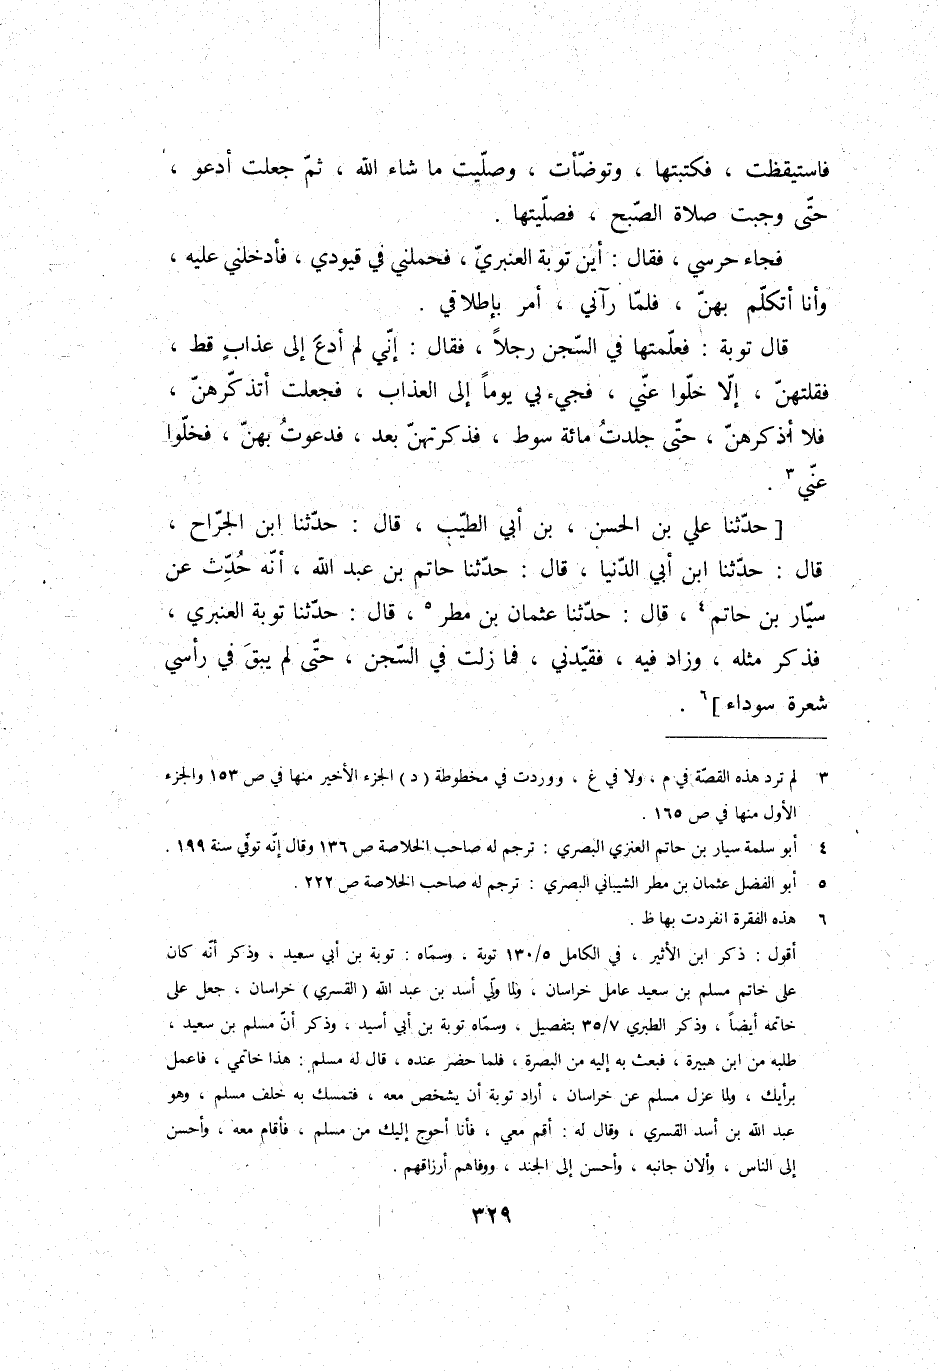 فاستيقظت ، فكتبتها ، وتوضّأت ، وصلّيت ما شاء الله ، ثمّ جعلت أدعو ،
حتّى وجبت صلاة الصّبح ، فصلّيتها .
فجاء حرسي ، فقال : أين توبة العنبريّ ، فحملني في قيودي ، فأدخلني عليه ،
وأنا أتكلّم بهنّ ، فلمّا رآني ، أمر بإطلاقي .
قال توبة : فعلّمتها في السّجن رجلاً ، فقال : إنّي لم أدعَ إلى عذابٍ قط ،
فقلتهنّ ، إلّا خلّوا عنّي ، فجيء بي يوماً إلى العذاب ، فجعلت أتذكّرهنّ ،
فلا أذكرهنّ ، حتّى جلدتُ مائة سوط ، فذكرتهنّ بعد ، فدعوتُ بهنّ ، فخلّوا
عنّي ٣ .
[ حدّثنا علي بن الحسن ، بن أبي الطيّب ، قال : حدّثنا ابن الجرّاح ،
قال : حدّثنا ابن أبي الدّنيا ، قال : حدّثنا حاتم بن عبد الله ، أنّه حُدِّث عن
سيّار بن حاتم ٤ ، قال : حدّثنا عثمان بن مطر ٥ ، قال : حدّثنا توبة العنبري ،
فذكر مثله ، وزاد فيه ، فقيّدني ، فما زلت في السّجن ، حتّى لم يبقَ في رأسي
شعرة سوداء ] ٦ .
٣ لم ترد هذه القصّة في م ، ولا في غ ، ووردت في مخطوطة ( د ) الجزء الأخير منها في ص ١٥٣ والجزء
الأول منها في ص ١٦٥ .
٤ أبو سلمة سيار بن حاتم العنزي البصري : ترجم له صاحب الخلاصة ص ١٣٦ وقال إنّه توفّي سنة ١٩٩ .
٥ أبو الفضل عثمان بن مطر الشيباني البصري : ترجم له صاحب الخلاصة ص ٢٢٢ .
٦ هذه الفقرة انفردت بها ظ .
أقول : ذكر ابن الأثير ، في الكامل ١٣٠/٥ توبة ، وسمّاه : توبة بن أبي سعيد ، وذكر أنّه كان
على خاتم مسلم بن سعيد عامل خراسان ، ولما ولّي أسد بن عبد الله ( القسري ) خراسان ، جعل على
خاتمه أيضاً ، وذكر الطبري ٣٥/٧ بتفصيل ، وسمّاه توبة بن أبي أسيد ، وذكر أنّ مسلم بن سعيد ،
طلبه من ابن هبيرة ، فبعث به إليه من البصرة ، فلما حضر عنده ، قال له مسلم : هذا خاتمي ، فاعمل
برأيك ، ولما عزل مسلم عن خراسان ، أراد توبة أن يشخص معه ، فتمسك به خلف مسلم ، وهو
عبد الله بن أسد القسري ، وقال له : أقم معي ، فأنا أحوج إليك من مسلم ، فأقام معه ، وأحسن
إلى الناس ، وألان جانبه ، وأحسن إلى الجند ، ووفاهم أرزاقهم .
٣٢٩